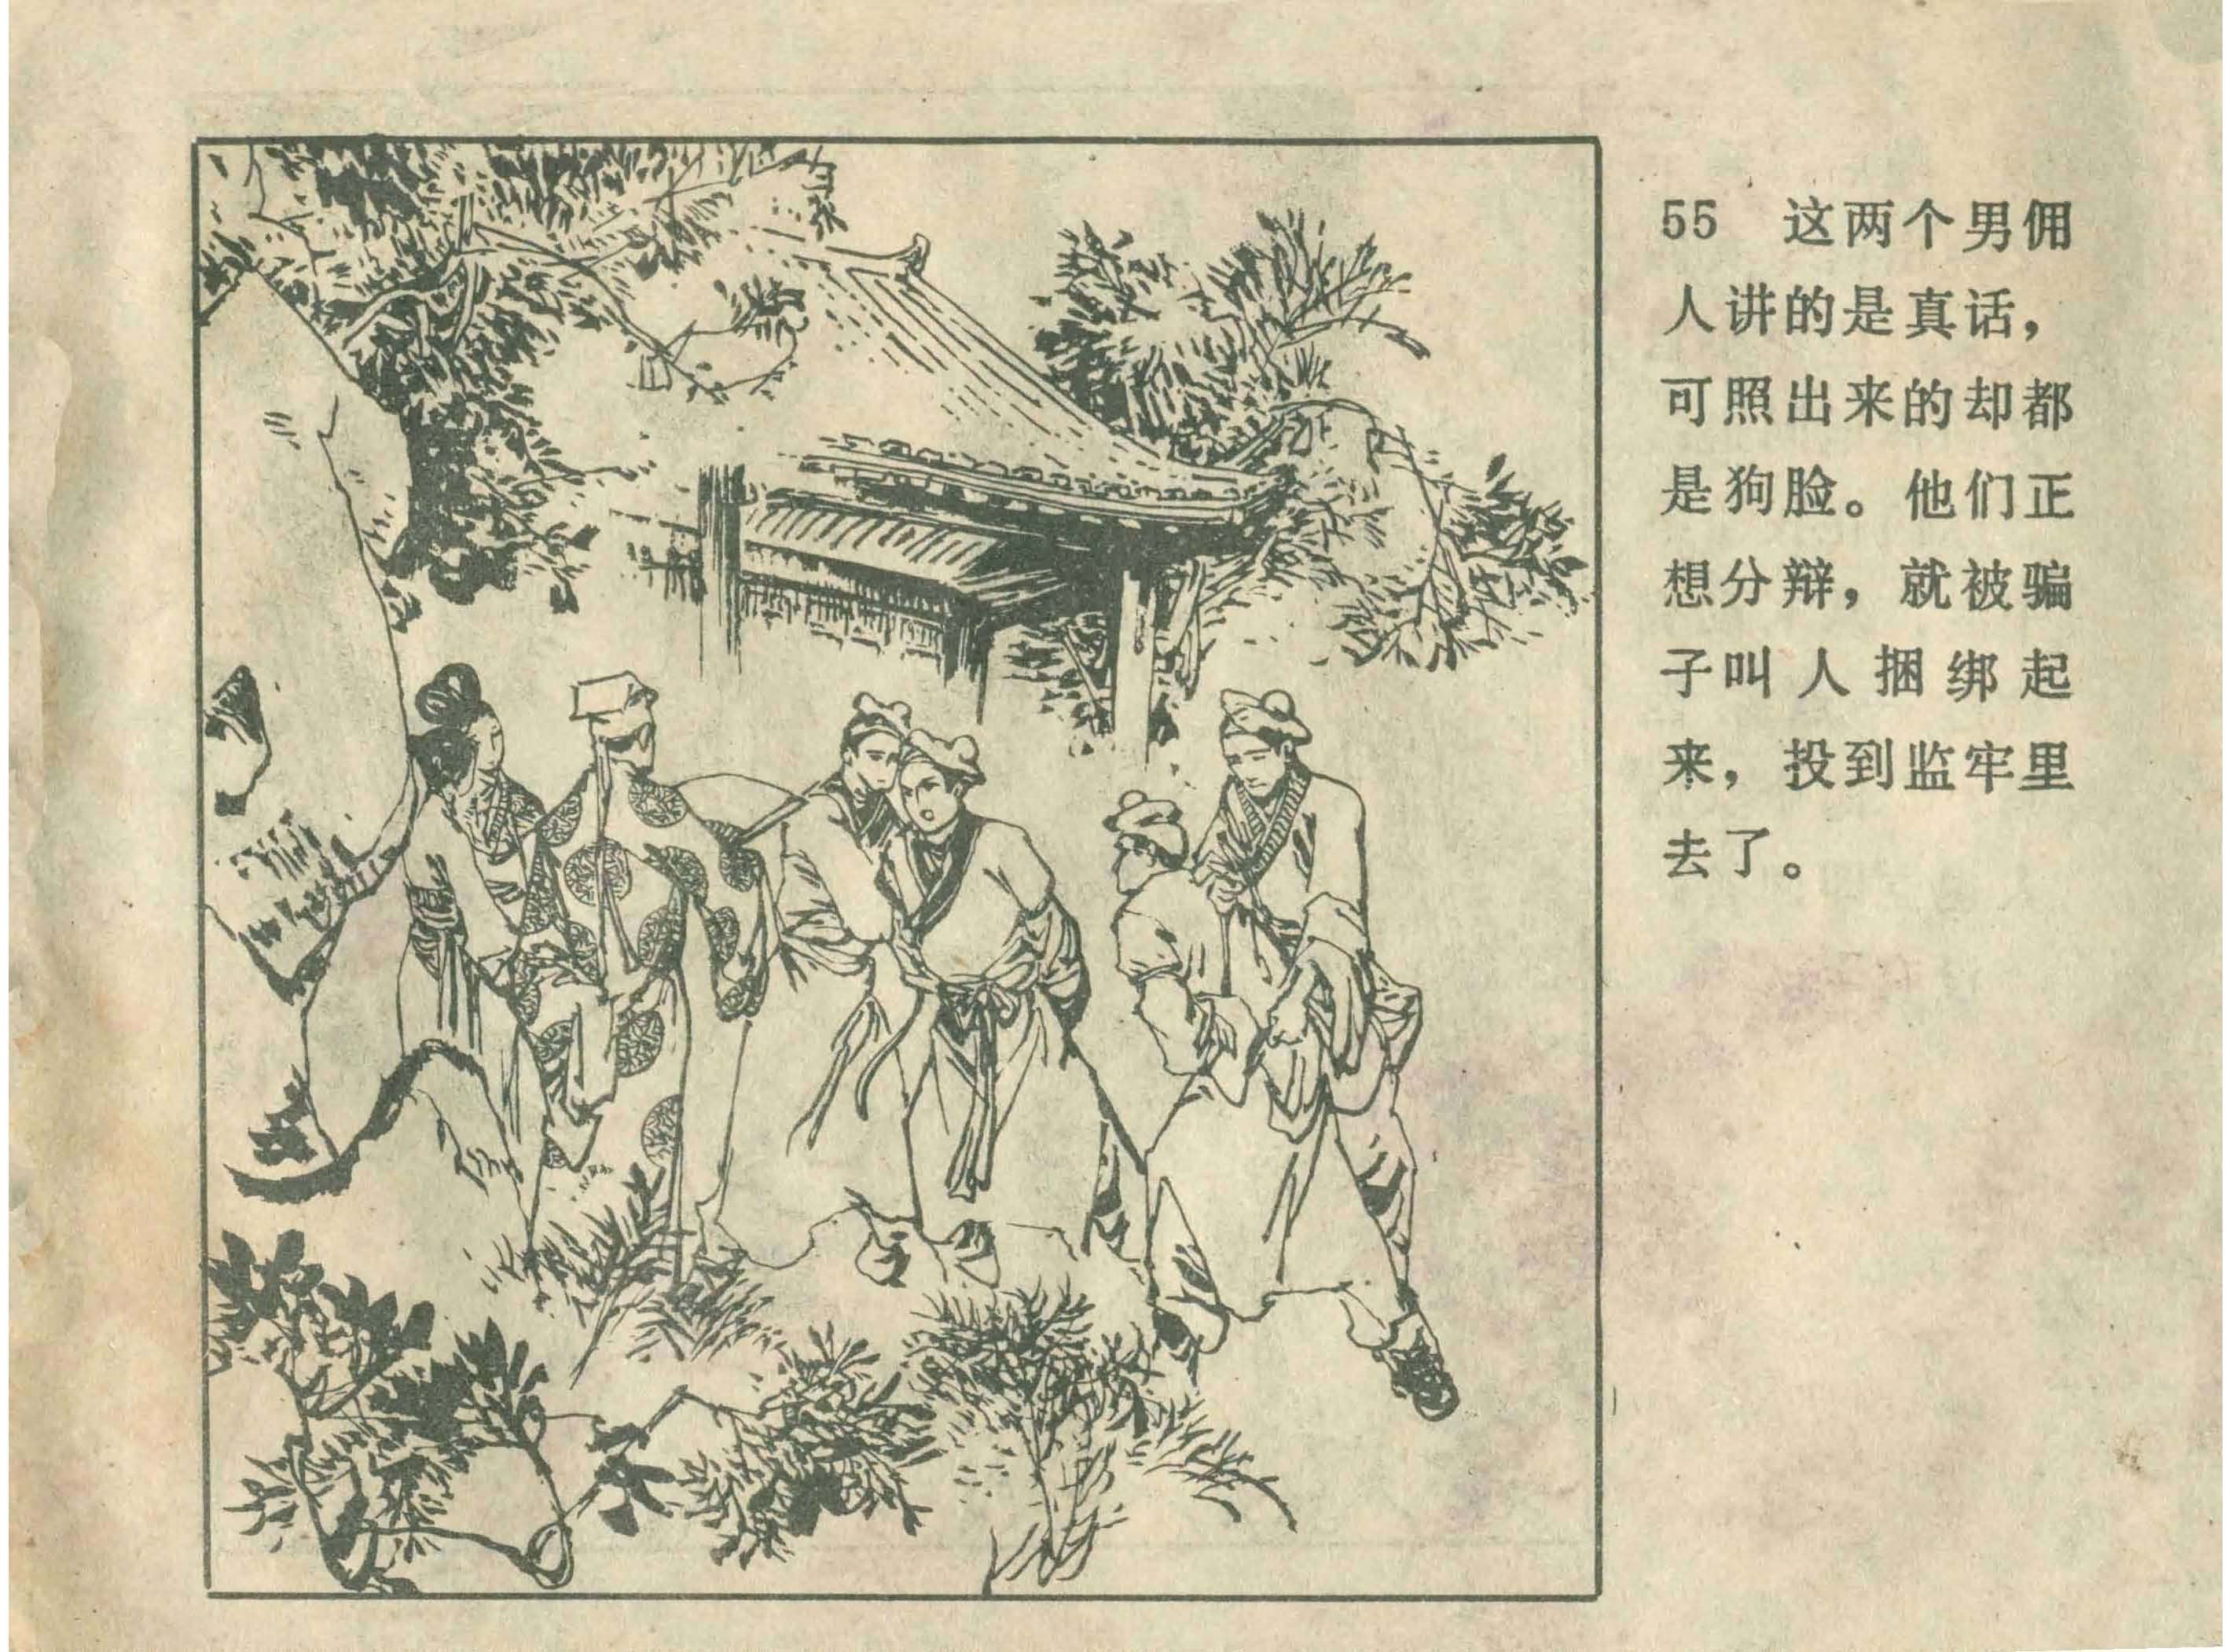 55 这两个男佣
人讲的是真话，
可照出来的却都
是狗脸。他们正
想分辩，就被骗
子叫人捆绑起
来，投到监牢里
去了。